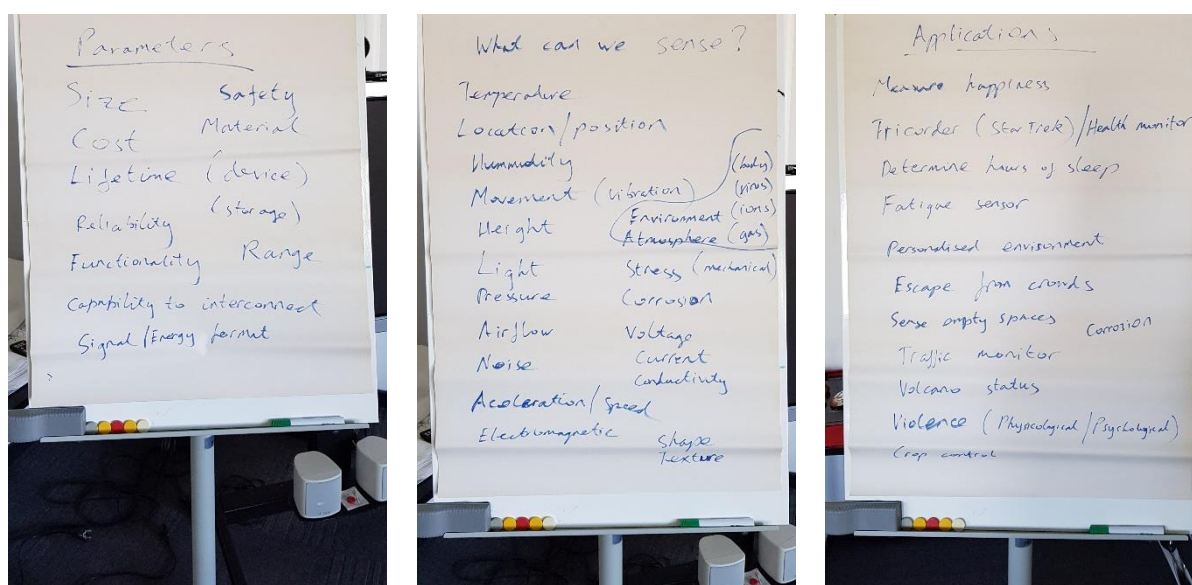 Parameters
Size Safety
Cost Material
Lifetime (device)
(storage)
Reliability
Functionality Range
Capability to interconnect
Signal/Energy format
?
What can we sense?
Temperature
Location/position
Hummudity
(body)
Movement (vibration) (virus)
Environment (ions)
Height Atmosphere (gas)
Light Stress (mechanical)
Pressure Corrosion
Airflow Voltage
Noise Current
conductivity
Aceleration/speed
Electromagnetic shape
Texture
Applications
Measure happiness
Tricorder (Star Trek)/Health monitor
Determine hours of sleep
Fatigue sensor
Personalised environment
Escape from crowds
Sense empty spaces Corrosion
Traffic monitor
Volcano status
Violence (Physicological/Psychological)
Crop control